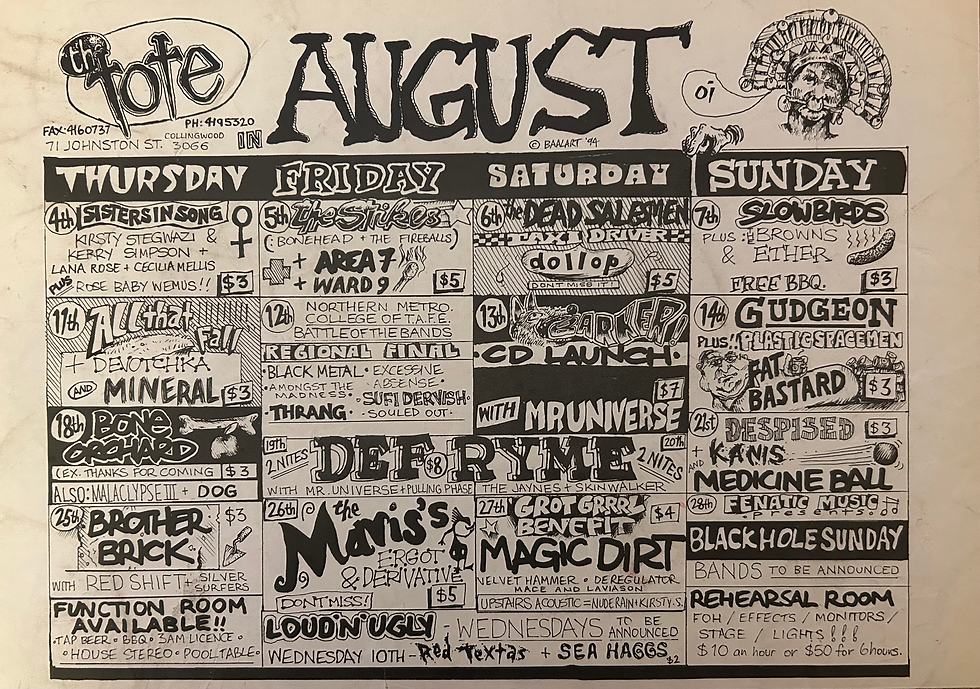 the tote
AUGUST
oi
FAX:4160737
PH:4195320
COLLINGWOOD
71 JOHNSTON ST. 3066
IN
© BAALART '94
THURSDAY
FRIDAY
SATURDAY
SUNDAY
4th SISTERS IN SONG
KIRSTY STEGWAZI &
KERRY SIMPSON +
LANA ROSE + CECILIA MELLIS
PLUS ROSE BABY WEMUS!! $3
5th the Strikes
(BONEHEAD + THE FIREBALLS)
+ AREA 7
+ WARD 9 $5
6th the DEAD SALESMEN
TAXI DRIVER
dollop
DON'T MISS IT! $5
7th SLOWBIRDS
PLUS BROWNS
& ETHER
FREE BBQ. $3
11th All that Fall
+ DEVOTCHKA
AND MINERAL $3
12th NORTHERN METRO.
COLLEGE OF TAFE
BATTLE OF THE BANDS
REGIONAL FINAL
•BLACK METAL• EXCESSIVE
•AMONGST THE MADNESS• ABSENSE•
•SUFI DERVISH•
THRANG• •SOULED OUT•
13th
•CD LAUNCH•
$7
WITH MR UNIVERSE
14th GUDGEON
PLUS!! PLASTIC SPACEMEN
FAT
BASTARD $3
18th BONE
ORCHARD
(EX. THANKS FOR COMING $3
ALSO: MALACLYPSE III + DOG
19th 2 NITES DEF RYME $8 20th 2 NITES
WITH MR. UNIVERSE + PULLING PHASE THE JAYNES + SKINWALKER
21st DESPISED $3
AND KANIS
MEDICINE BALL
25th BROTHER $3
BRICK
WITH RED SHIFT + SILVER
SURFERS
26th the
Mavis's
ERGOT
& DERIVATIVE
DON'T MISS! $5
27th GROT GRRRL $4
BENEFIT
MAGIC DIRT
VELVET HAMMER • DEREGULATOR
MACE AND LAVIASON
UPSTAIRS ACOUSTIC = NUDE RAIN + KIRSTY.S.
28th FENATIC MUSIC
BLACK HOLE SUNDAY
BANDS TO BE ANNOUNCED
FUNCTION ROOM
AVAILABLE!!
•TAP BEER • BBQ • 3AM LICENCE •
•HOUSE STEREO • POOL TABLE•
LOUD'N'UGLY - WEDNESDAYS TO BE
ANNOUNCED
WEDNESDAY 10TH - Red Textas + SEA HAGGS $2
REHEARSAL ROOM
FOH / EFFECTS / MONITORS /
STAGE / LIGHTS !!!
$10 an hour or $50 for 6 hours.